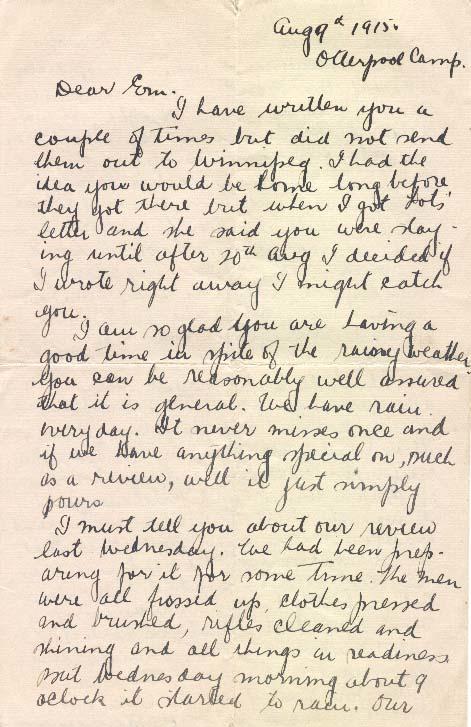 Aug 9th 1915.
Otterpool Camp.
Dear Em.
I have written you a
couple of times but did not send
them out to Winnipeg. I had the
idea you would be home long before
they got there but when I got Lols'
letter and she said you were stay-
ing until after 20th Aug I decided if
I wrote right away I might catch
you.
I am so glad you are having a
good time in spite of the rainy weather.
You can be reasonably well assured
that it is general. We have rain
every day. It never misses once and
if we have anything special on, such
as a review, well it just simply
pours
I must tell you about our review
last Wednesday. We had been prep-
aring for it for some time. The men
were all fussed up, clothes pressed
and brushed, rifles cleaned and
shining and all things in readiness
But Wednesday morning about 9
oclock it started to rain. Our